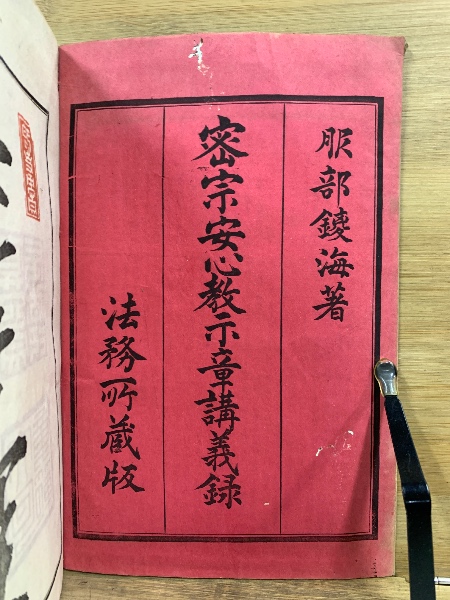 服部鑁海著
密宗安心教示章講義録
法務所蔵版